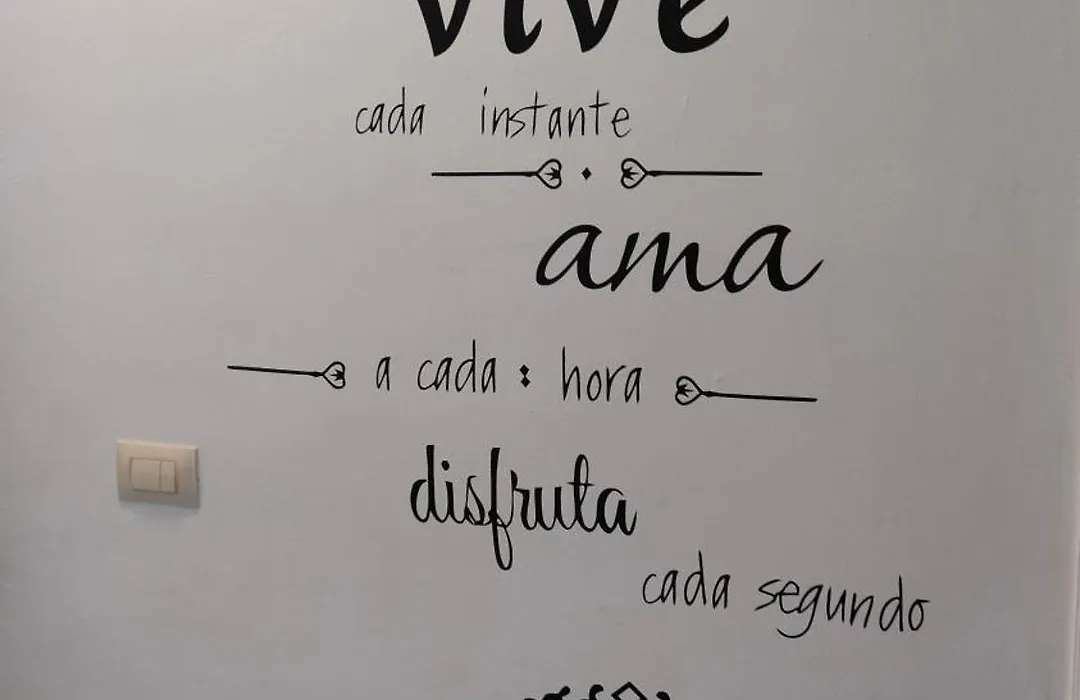 vive
cada instante
ama
a cada : hora
disfruta
cada segundo